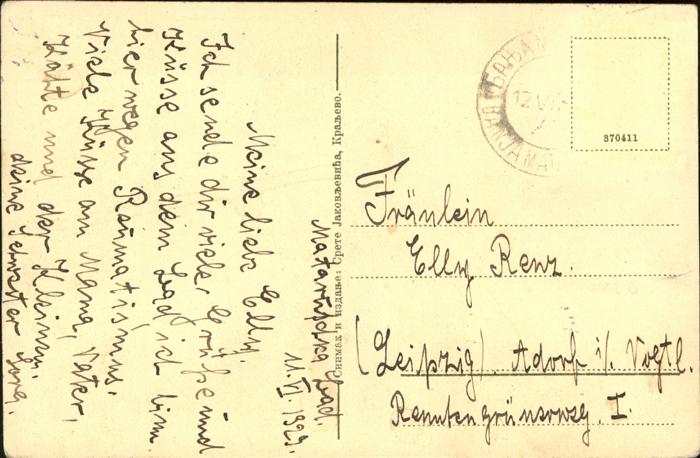 Mataruška Bad.
11. VI. 1929.
Meine liebe Elly.
Ich sende dir viele Grüße und
Küsse aus dem Bad ich bin
hier wegen Reümatismus.
Viele Küsse an Mama, Vater,
Käthe und der Kleinen.
deine Schwester
Снимак и издање: Срете Јаковљевића, Краљево.
БАЊА
BANJA MA
12 VI
370411
Fräulein
Elly Renz.
(Leipzig). Adorf i/. Vogtl.
I.